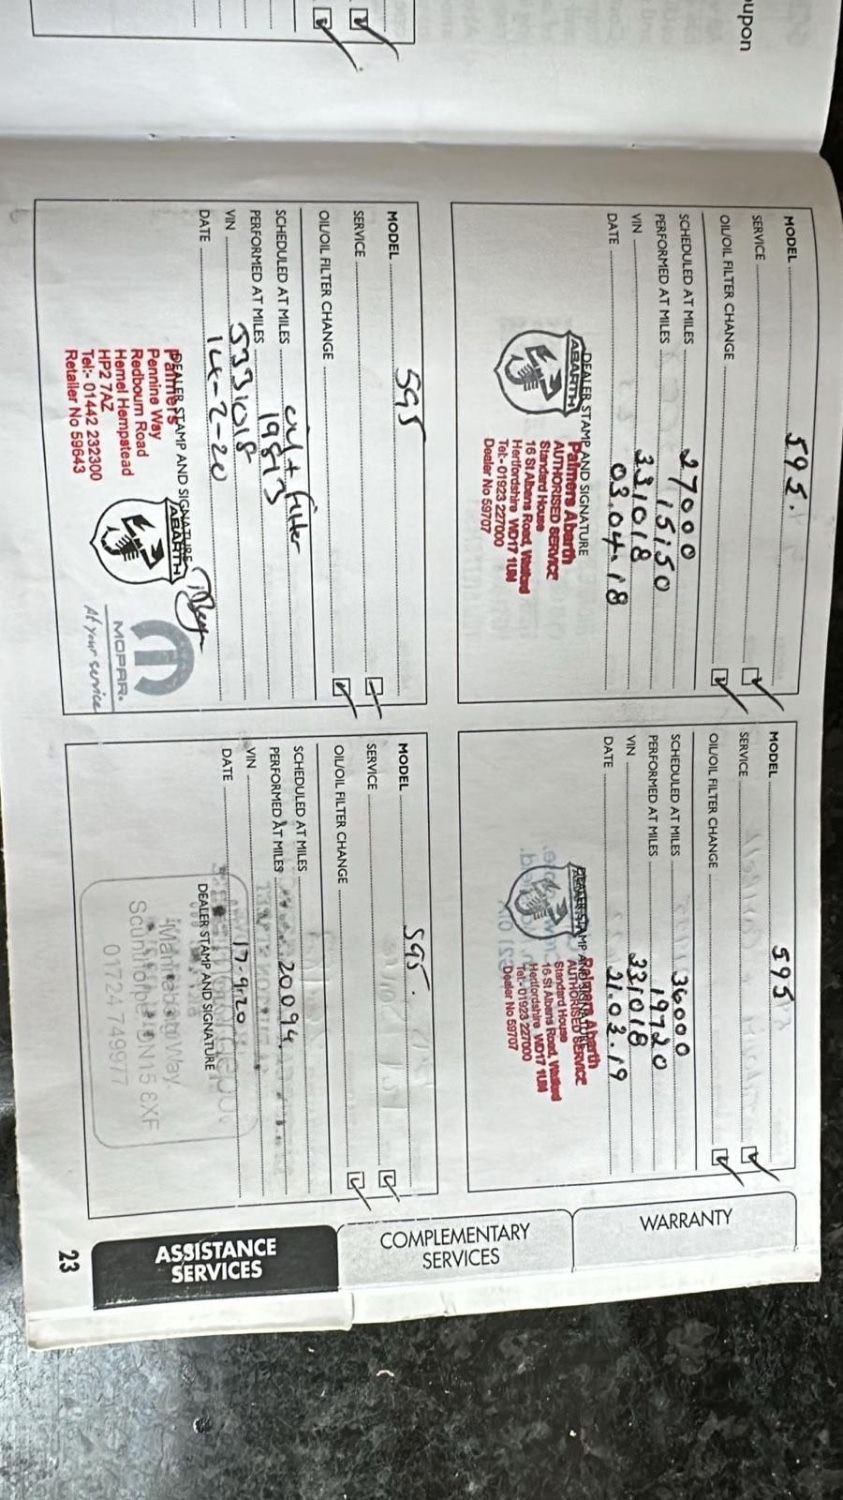 upon
MODEL 595.
SERVICE
OIL/OIL FILTER CHANGE
SCHEDULED AT MILES 27000
PERFORMED AT MILES 15150
VIN 331018
DATE 03.04.18
DEALER STAMP AND SIGNATURE
ABARTH
Palmers Abarth
AUTHORISED SERVICE
Standard House
16 St Albans Road, Watford
Hertfordshire WD17 1UN
Tel:- 01923 227000
Dealer No 59707
MODEL 595
SERVICE
OIL/OIL FILTER CHANGE
SCHEDULED AT MILES 36000
PERFORMED AT MILES 19720
VIN 331018
DATE 21.03.19
DEALER STAMP AND SIGNATURE
Palmers Abarth
AUTHORISED SERVICE
Standard House
16 St Albans Road, Watford
Hertfordshire WD17 1UN
Tel:- 01923 227000
Dealer No 59707
MODEL 595
SERVICE
OIL/OIL FILTER CHANGE
SCHEDULED AT MILES oil + filter
PERFORMED AT MILES 19813
VIN 5331018
DATE 14-2-20
DEALER STAMP AND SIGNATURE
Palmers
Pennine Way
Redbourn Road
Hemel Hempstead
HP2 7AZ
Tel:- 01442 232300
Retailer No 59643
ABARTH
MOPAR.
At your service
MODEL 595.
SERVICE
OIL/OIL FILTER CHANGE
SCHEDULED AT MILES
PERFORMED AT MILES 20094
VIN
DATE 17-9-20
DEALER STAMP AND SIGNATURE
Way
Scunthorpe DN15 8XF
01724 749977
WARRANTY
COMPLEMENTARY
SERVICES
ASSISTANCE
SERVICES
23